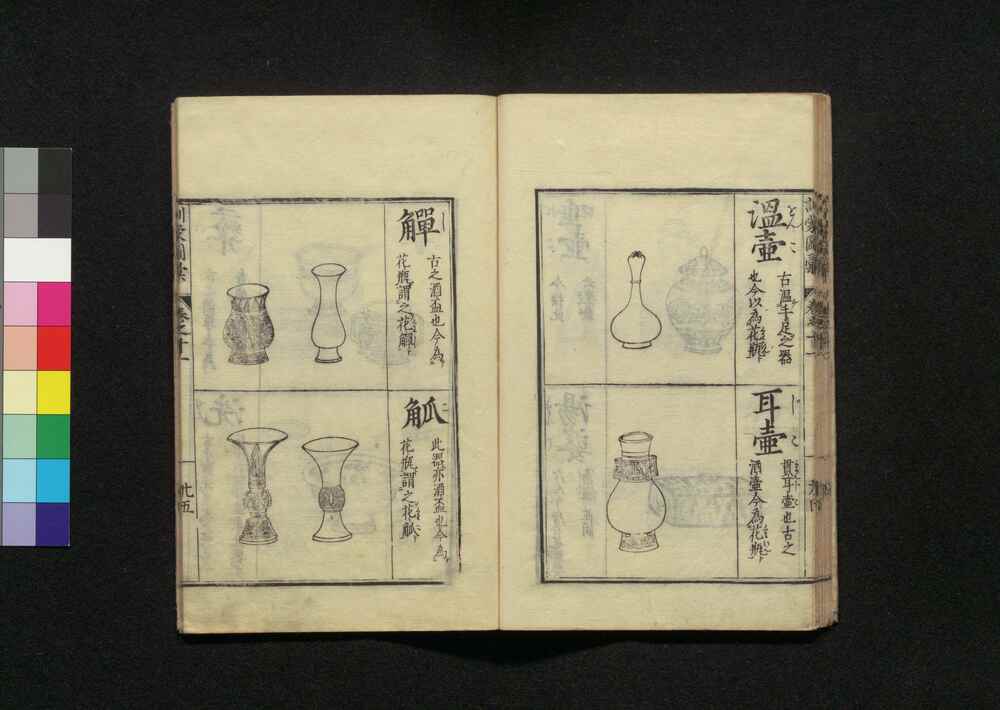 溫壺
古溫手足之器
也今以為花瓶
耳壺
貫耳壺也古之
酒壺今為花瓶
觶
古之酒盃也今為
花瓶謂之花觶
觚
此器亦酒盃也今為
花瓶謂之花觚
訓蒙圖彙
卷之十一
廿五